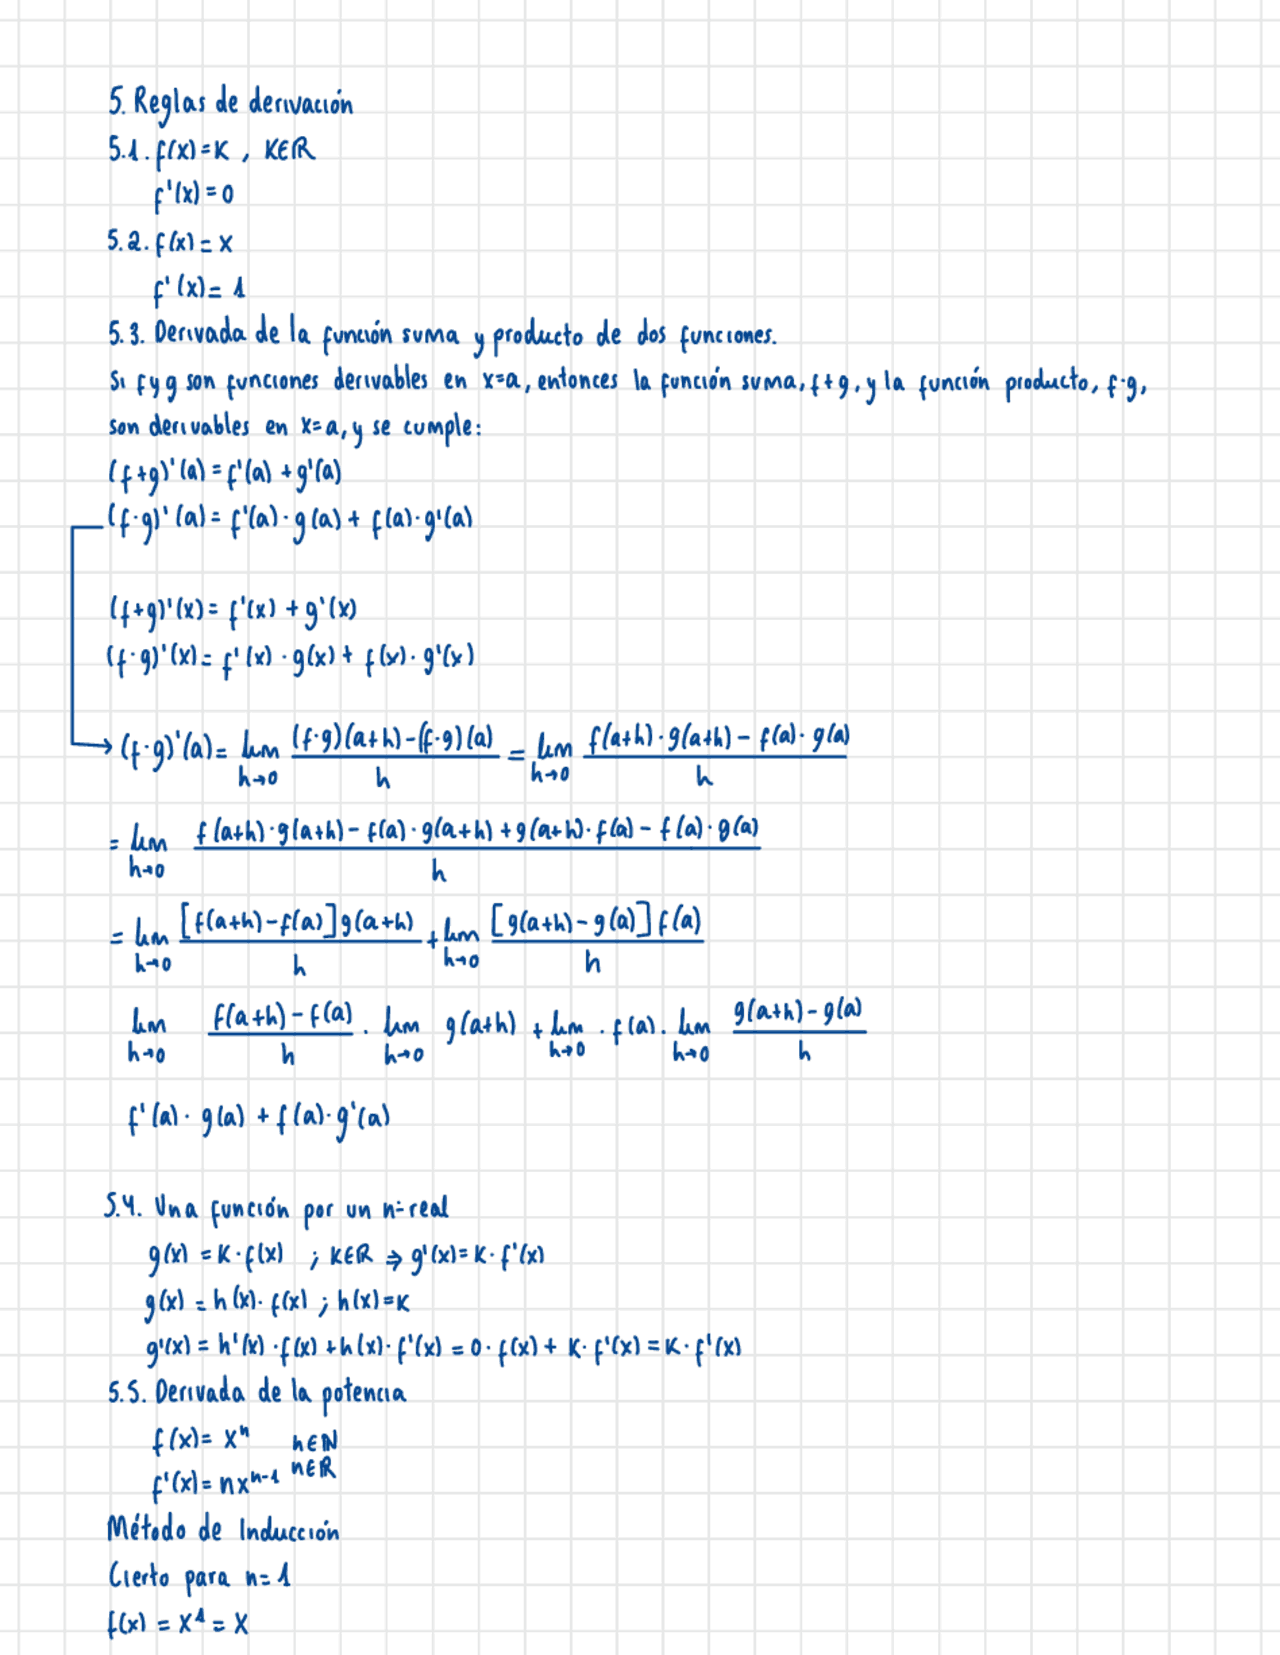 5. Reglas de derivación
5.1. f(x)=K , K∈ℝ
f'(x)=0
5.2. f(x)=x
f'(x)=1
5.3. Derivada de la función suma y producto de dos funciones.
Si f y g son funciones derivables en x=a, entonces la función suma, f+g, y la función producto, f·g,
son derivables en x=a, y se cumple:
(f+g)'(a)=f'(a)+g'(a)
(f·g)'(a)=f'(a)·g(a)+f(a)·g'(a)
(f+g)'(x)=f'(x)+g'(x)
(f·g)'(x)=f'(x)·g(x)+f(x)·g'(x)
→ (f·g)'(a)= lim h→0 ((f·g)(a+h)-(f·g)(a))/h = lim h→0 (f(a+h)·g(a+h)-f(a)·g(a))/h
= lim h→0 (f(a+h)·g(a+h)-f(a)·g(a+h)+g(a+h)·f(a)-f(a)·g(a))/h
= lim h→0 ([f(a+h)-f(a)]g(a+h))/h + lim h→0 ([g(a+h)-g(a)]f(a))/h
lim h→0 (f(a+h)-f(a))/h · lim h→0 g(a+h) + lim h→0 · f(a) · lim h→0 (g(a+h)-g(a))/h
f'(a)·g(a)+f(a)·g'(a)
5.4. Una función por un nº real
g(x)=K·f(x) ; K∈ℝ ⇒ g'(x)=K·f'(x)
g(x)=h(x)·f(x) ; h(x)=K
g'(x)=h'(x)·f(x)+h(x)·f'(x)=0·f(x)+K·f'(x)=K·f'(x)
5.5. Derivada de la potencia
f(x)=xⁿ n∈ℕ
f'(x)=nxⁿ⁻¹ n∈ℝ
Método de Inducción
Cierto para n=1
f(x)=x¹=x